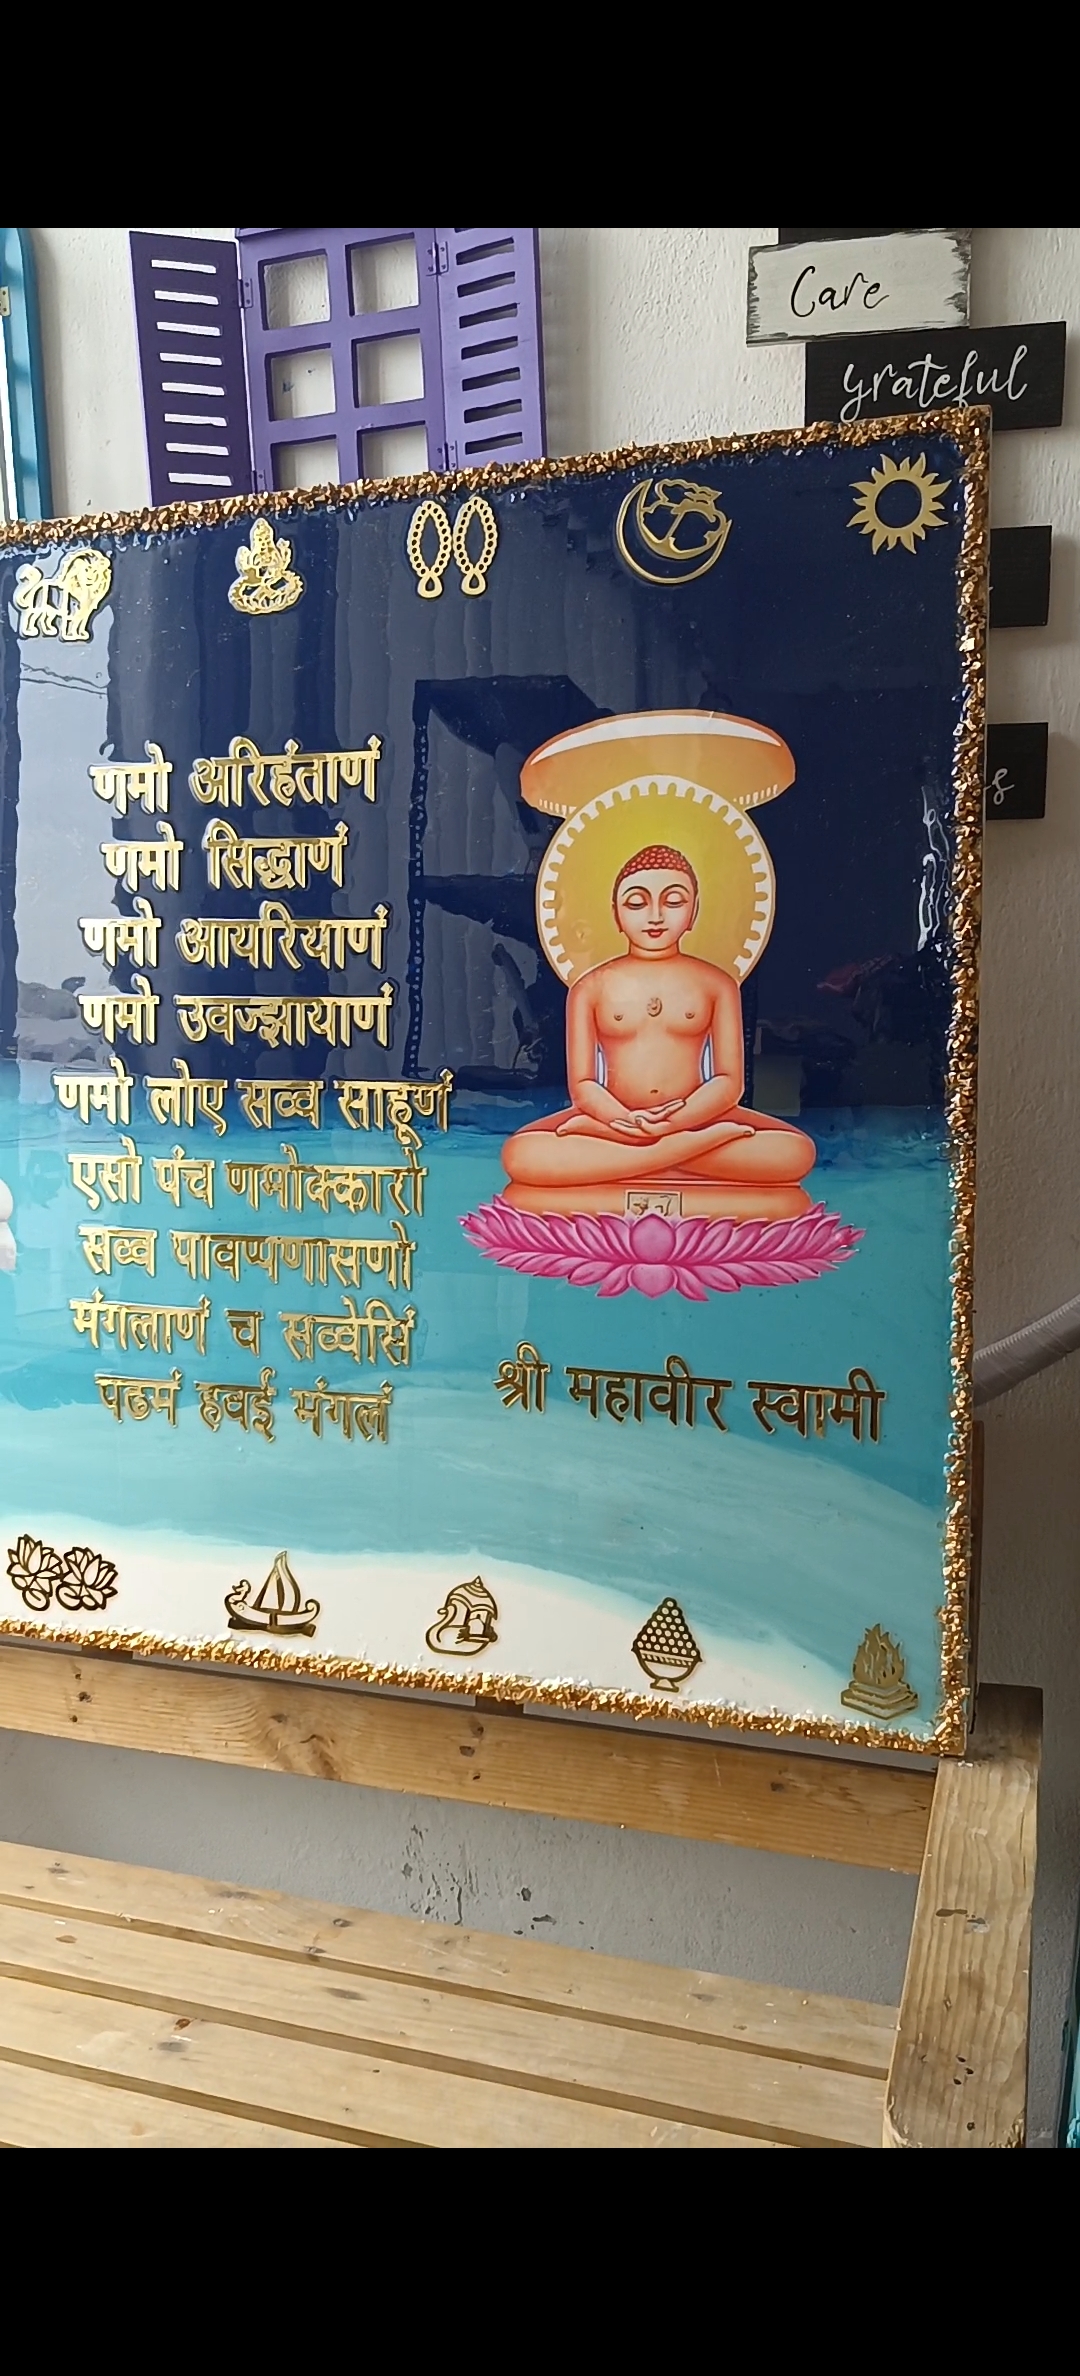 Care
grateful
णमो अरिहंताणं
णमो सिद्धाणं
णमो आयरियाणं
णमो उवज्झायाणं
णमो लोए सव्व साहूणं
एसो पंच णमोक्कारो
सव्व पावप्पणासणो
मंगलाणं च सव्वेसिं
पढमं हवई मंगलं
श्री महावीर स्वामी